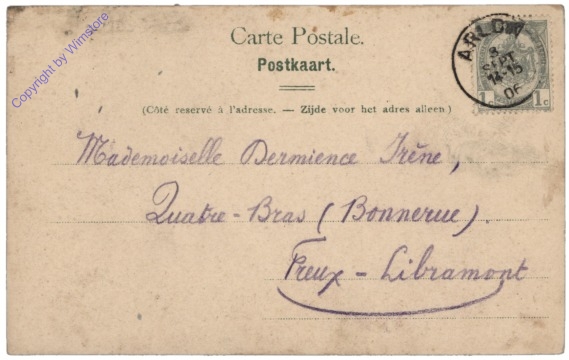 Copyright by Wimstore
Carte Postale.
Postkaart.
(Côté reservé à l'adresse. — Zijde voor het adres alleen.)
ARLON
8
SEPT
14-15
06
1c 1c
Mademoiselle Dermience Irène,
Quatre-Bras (Bonnerue).
Freux - Libramont